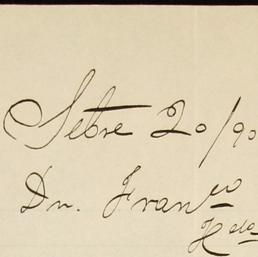 Setbre 20/90
Dn. Franco
Hdo